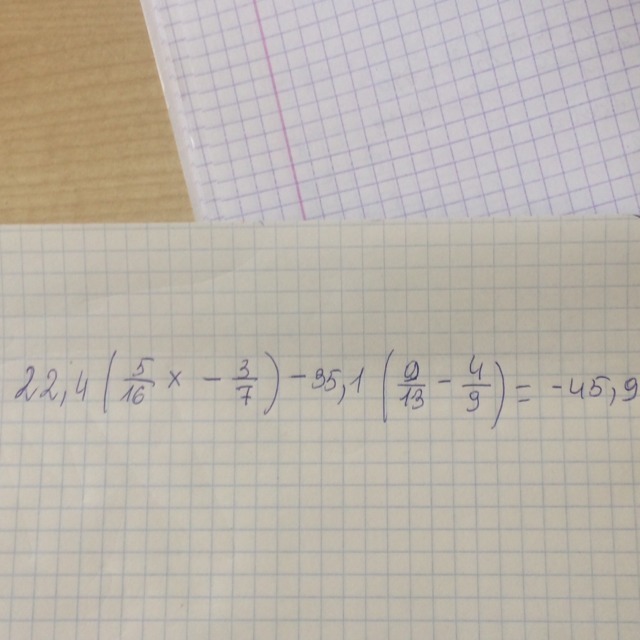 22,4 (5/16 x - 3/7) - 35,1 (9/13 - 4/9) = -45,9